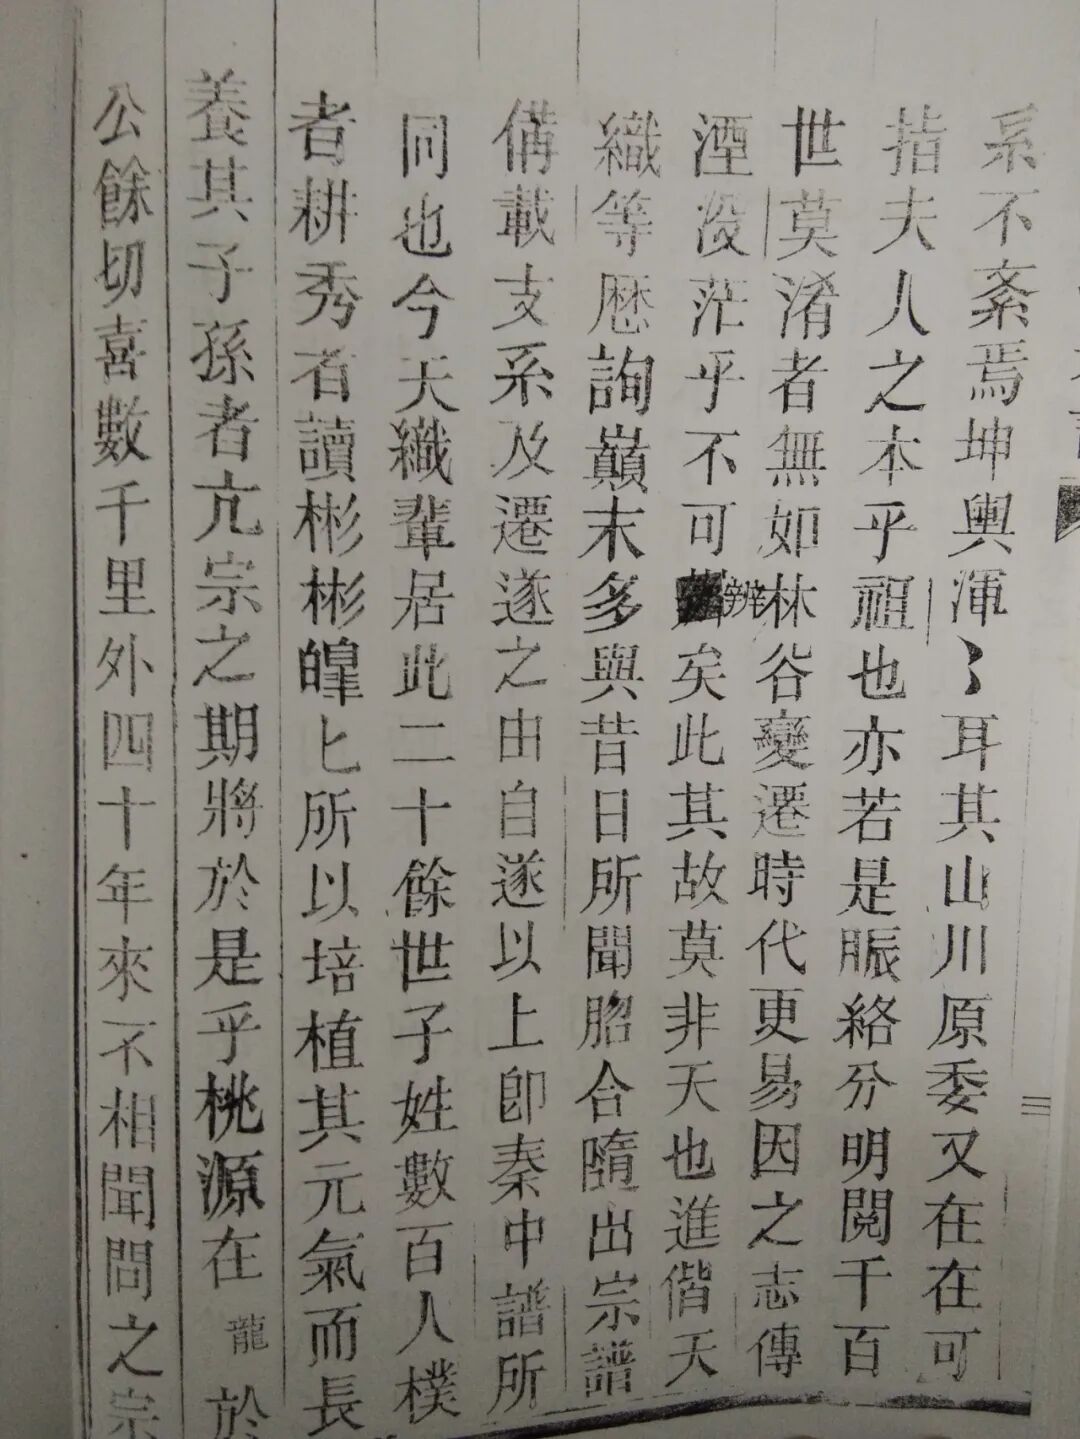 系不紊焉坤輿渾〻耳其山川原委又在在可
指夫人之本乎祖也亦若是脈絡分明閱千百
世莫淆者無如林谷變遷時代更易因之志傳
湮沒茫乎不可辨矣此其故莫非天也進偕天
織等歷詢巔末多與昔日所聞脗合隨出宗譜
備載支系及遷遂之由自遂以上卽秦中譜所
同也今天織輩居此二十餘世子姓數百人樸
者耕秀者讀彬彬皥匕所以培植其元氣而長
養其子孫者亢宗之期將於是乎桃源在龍於
公餘切喜數千里外四十年來不相聞問之宗